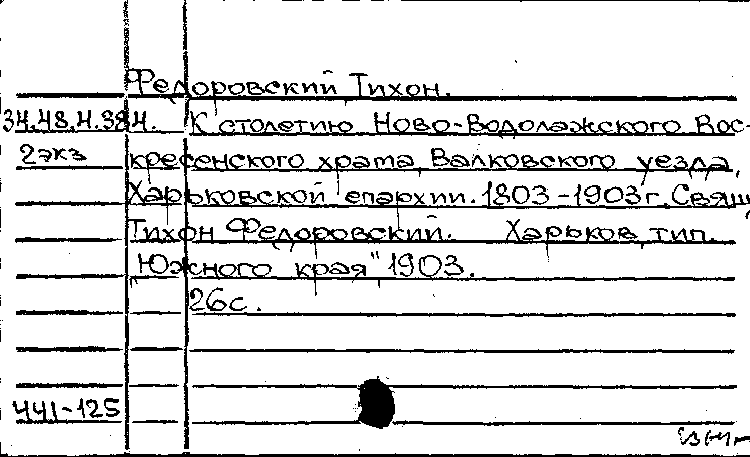 Федоровский Тихон.
34.48.4.384. К столетию Ново-Водолажского Вос-
2экз кресенского храма, Валковского уезда,
Харьковской епархии. 1803-1903г. Свящ.
Тихон Федоровский. Харьков, тип.
"Южного края" 1903.
26с.
441-125